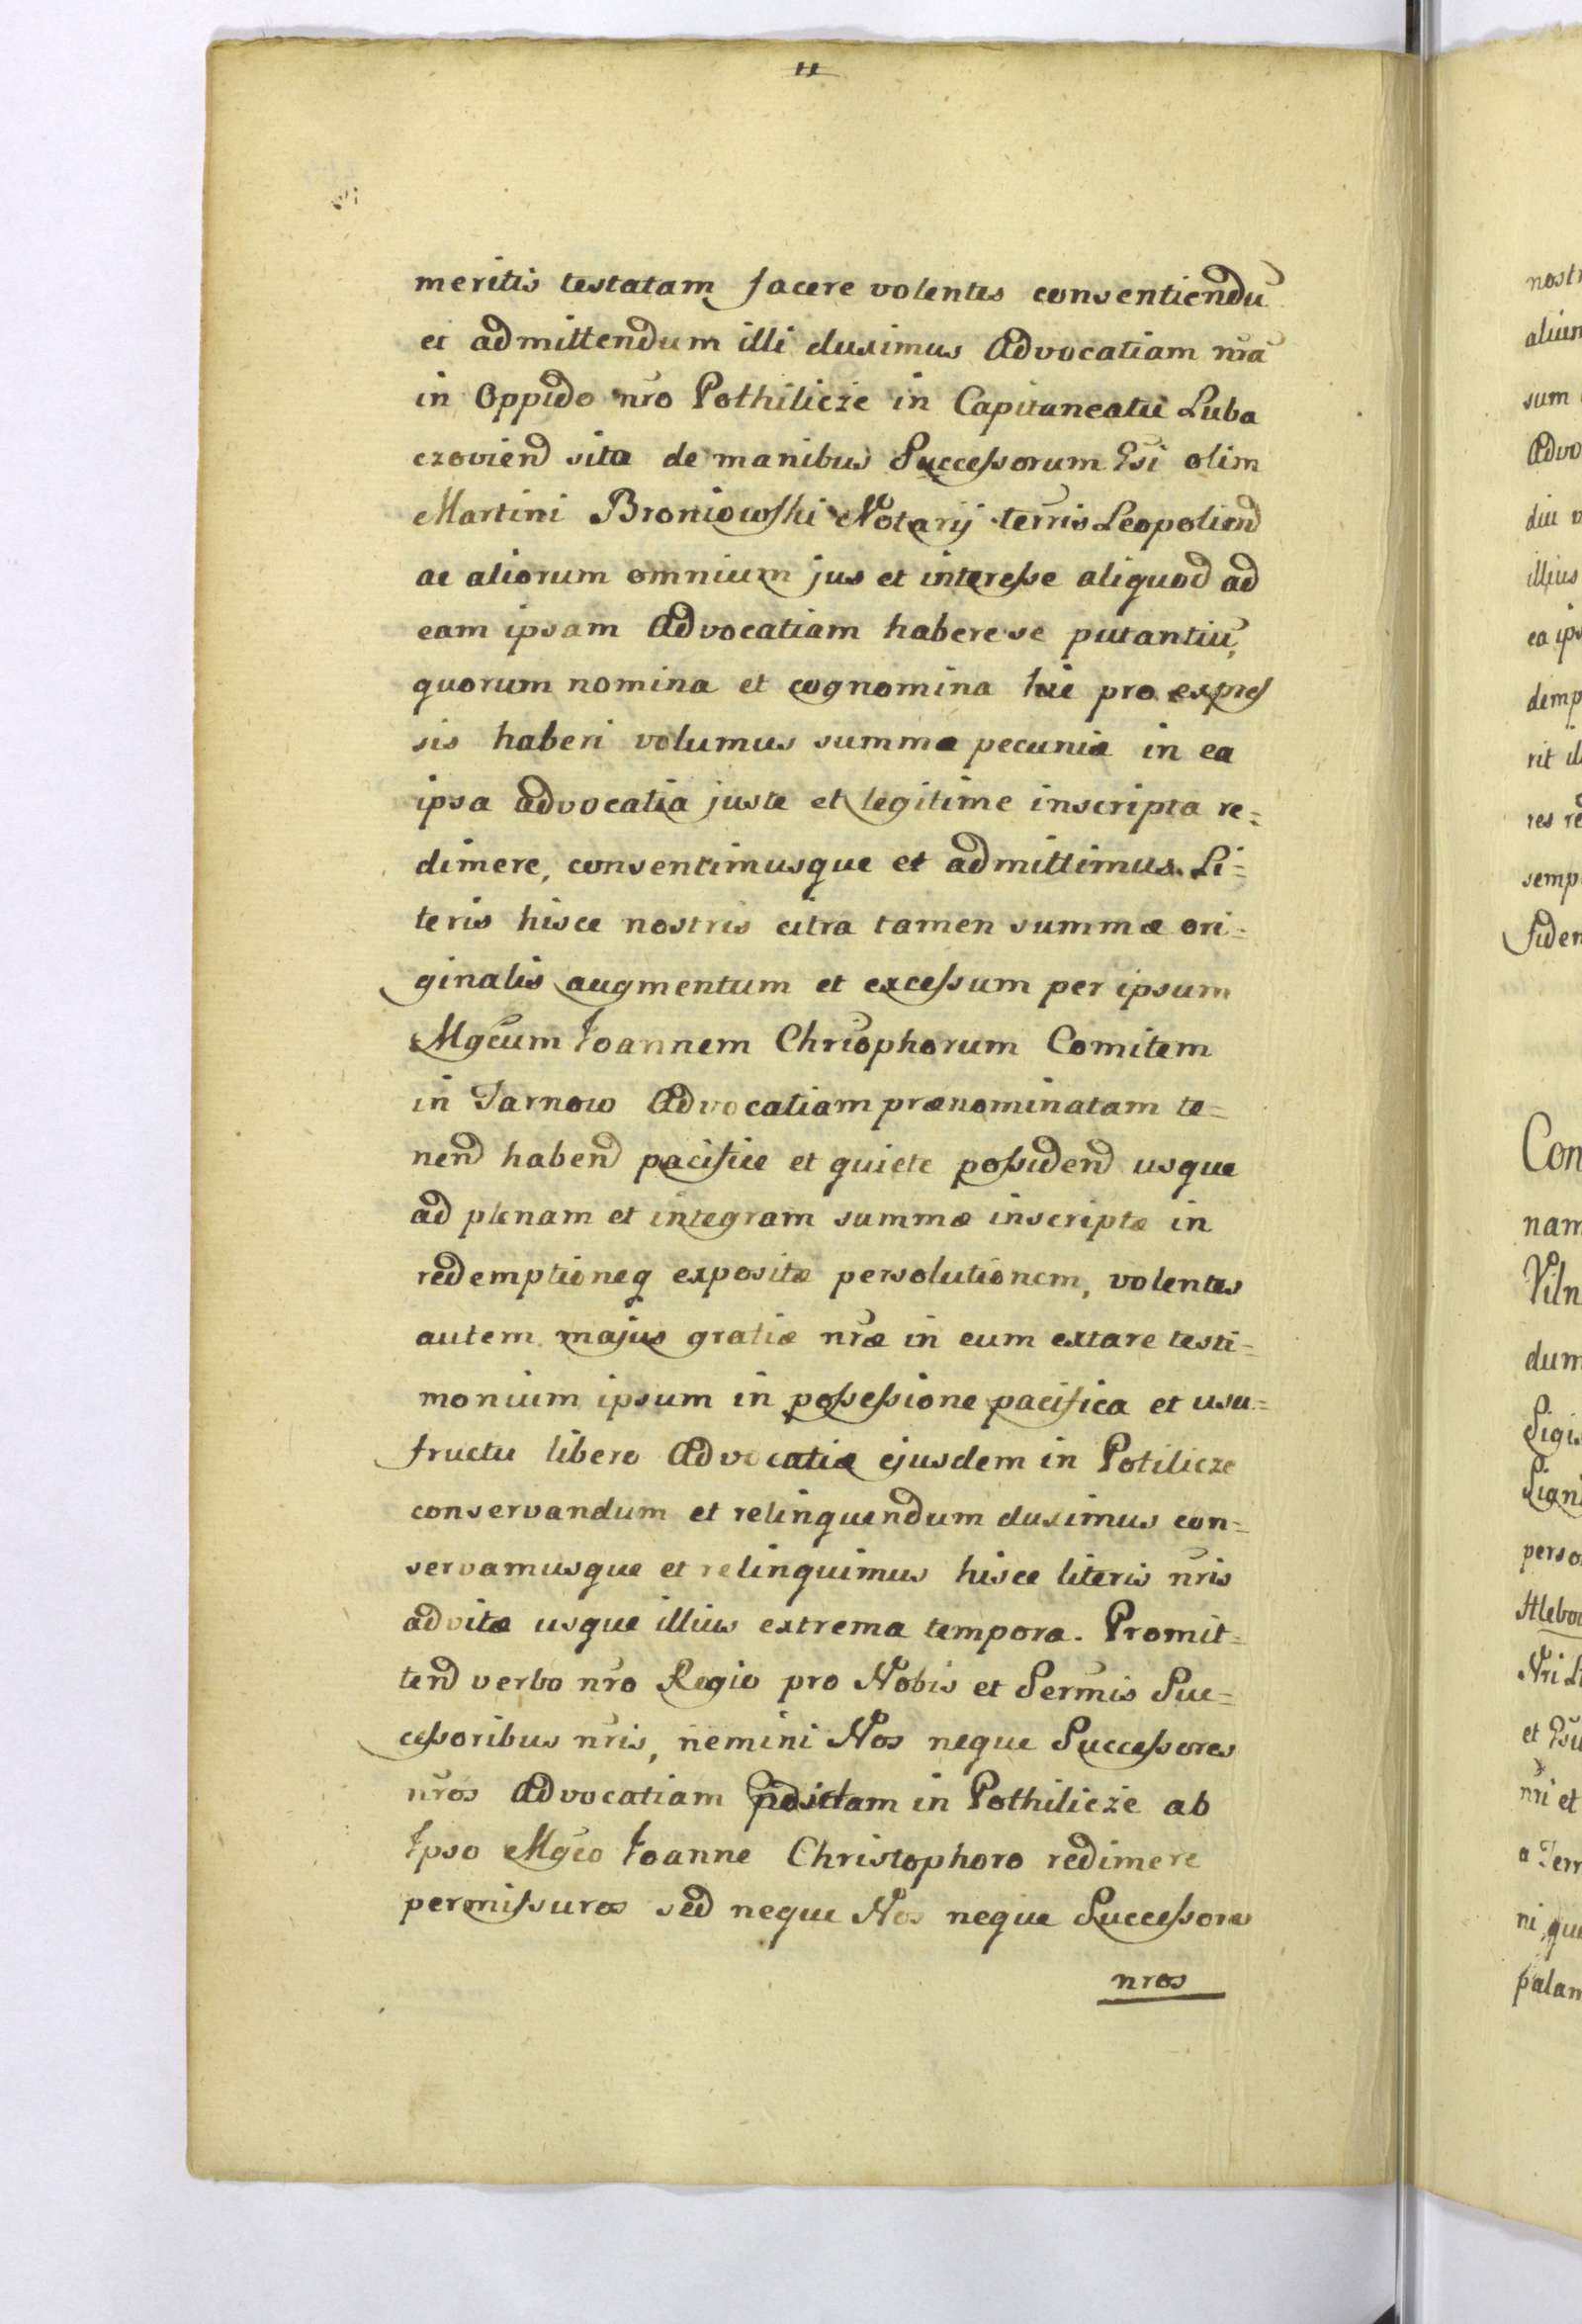 meritis testatam facere volentes consentiendũ
et admittendum illi duximus Advocatiam nrã
in Oppido nro Pothilicze in Capitaneatu Luba
czovien̄ sita de manibus Successorum Gsi olim
Martini Broniowski Notarij terris Leopolien̄
ac aliorum omnium jus et interesse aliquod ad
eam ipsam Advocatiam habere se putantiũ,
quorum nomina et cognomina hic pro expres
sis haberi volumus summæ pecuniæ in ea
ipsa advocatia juste et legitime inscripta re=
dimere, consentimusque et admittimus. Li=
teris hisce nostris citra tamen summæ ori=
ginalis augmentum et excessum per ipsum
Mgcum Joannem Chriõphorum Comitem
in Tarnow Advocatiam prænominatam te=
nend habend pacifice et quiete possidend usque
ad plenam et integram summæ inscriptæ in
redemptioneq expositæ persolutionem, volentes
autem majus gratiæ nræ in eum extare testi=
monium ipsum in possessione pacifica et usu=
fructu libero Advocatiæ ejusdem in Potilicze
conservandum et relinquendum duximus con=
servamusque et relinquimus hisce literis nris
ad vitæ usque illius extrema tempora. Promit=
tend verbo nro Regio pro Nobis et Sermis Suc=
cessoribus nris, nemini Nos neque Successores
nros Advocatiam in Pothilicze ab
Ipso Mgco Joanne Christophoro redimere
permissuros sed neque Nos neque Successores
nros
nost
sum
Advo
diu
illius
ea ip
demp
rit
semp
fiden
Con
nam
Viln
dum
Sigis
perso
Nri
et
nri et
a Terr
ni, qu
palam